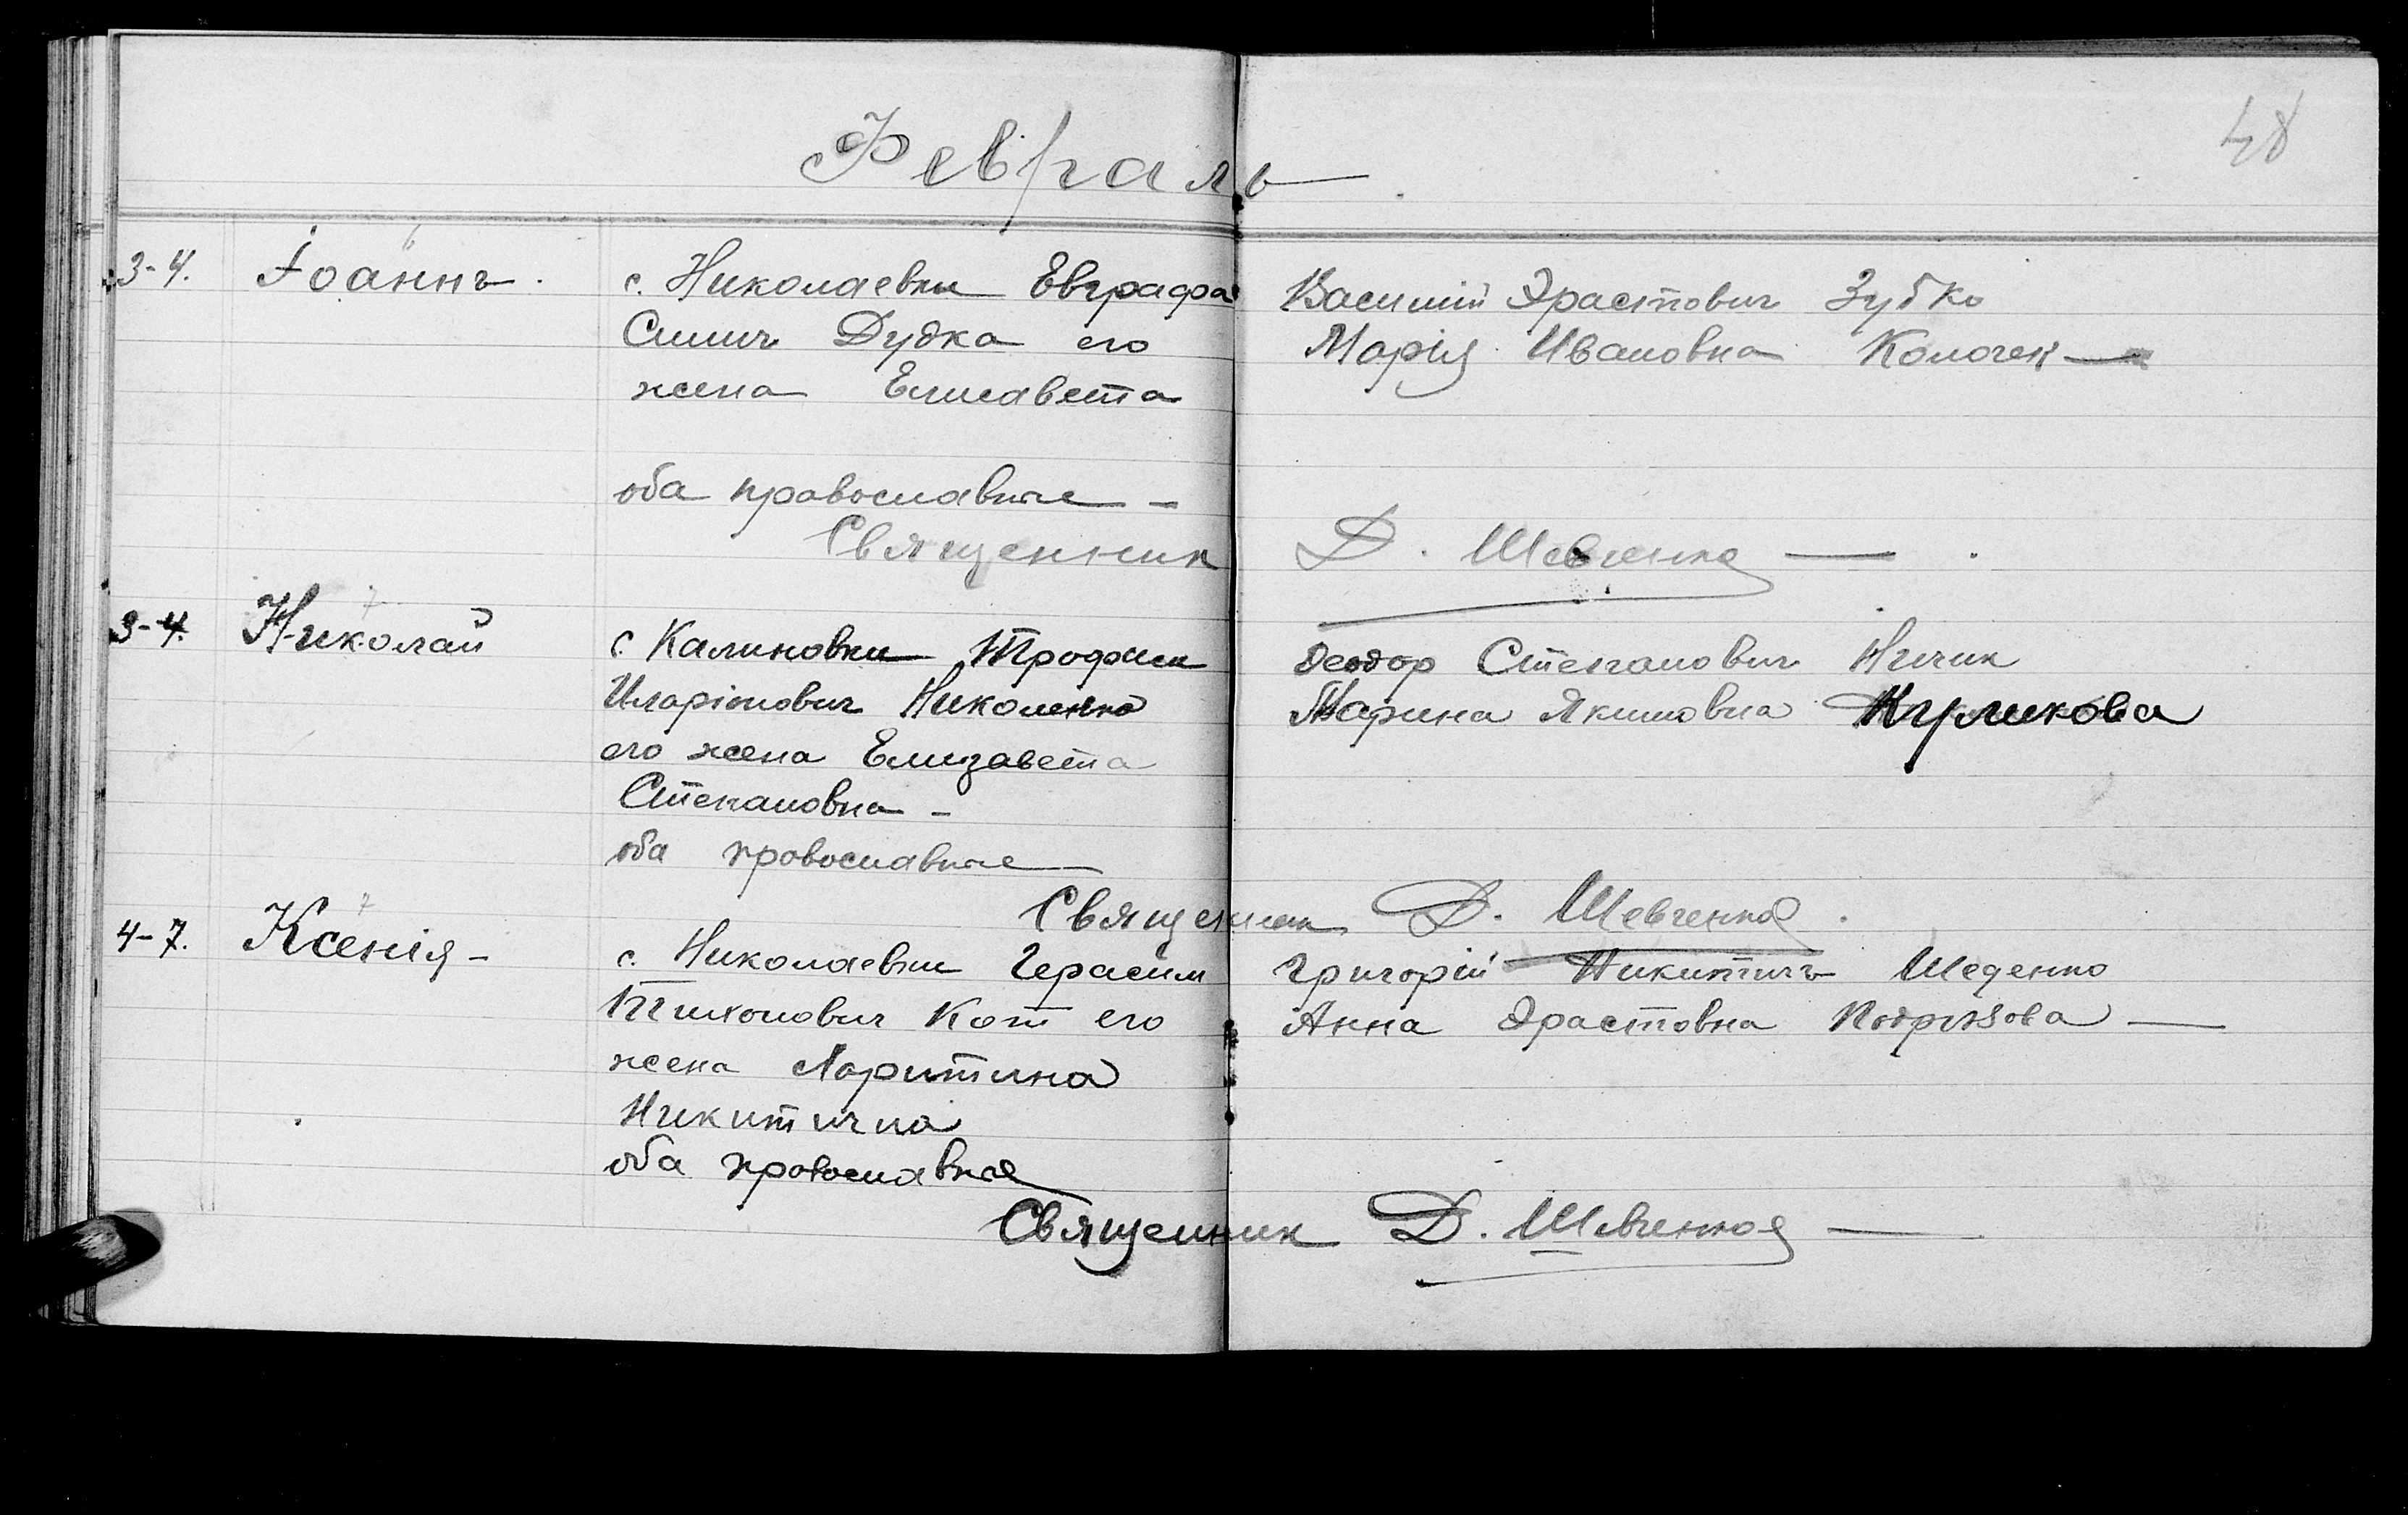 48
Февраль
3-4. Іоаннъ. с. Николаевки Евграфа Василій Эрастович Зубко
Симич Дудка его Марія Ивановна Колочек
жена Елисавета
оба православные
Священник Д. Шевченко
3-4. Николай с. Калиновки Трофим Феодор Степанович Ничик
Иларіонович Николенко Марина Якимовна Куликова
его жена Елизавета
Степановна
оба провославные
Священник Д. Шевченко
4-7. Ксенія с. Николаевки Герасим Григорій Никитичъ Шеденко
Тихонович Кот его Анна Эрастовна
жена Маритина
Никитична
оба провославные
Священник Д. Шевченко